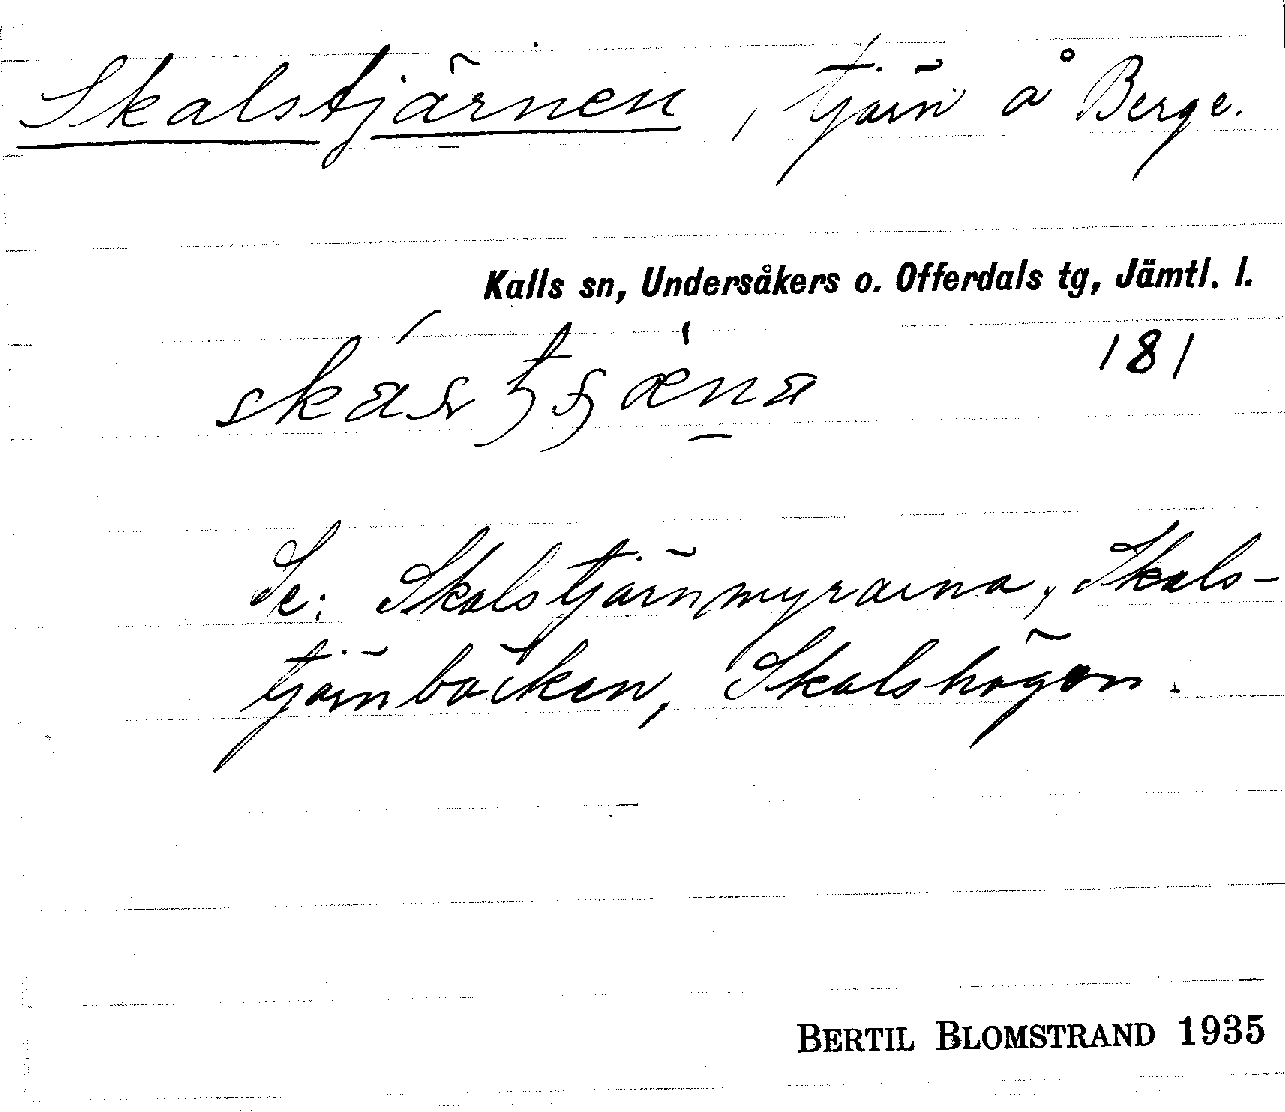 Skalstjärnen, tjärn å Berge.
Kalls sn, Undersåkers o. Offerdals tg, Jämtl. l.
181
Se: Skalstjärnmyrarna, Skals-
tjärnbäcken, Skalshögen.
BERTIL BLOMSTRAND 1935